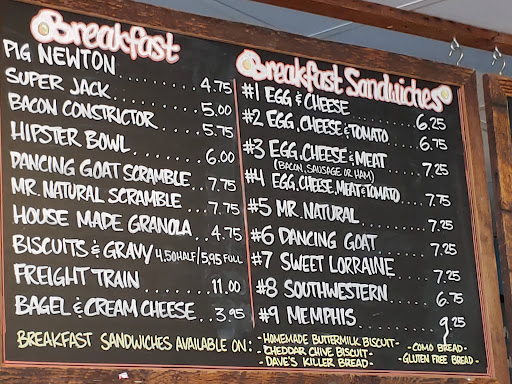 Breakfast
PIG NEWTON ........ 4.75
SUPER JACK ........ 5.00
BACON CONSTRICTOR ........ 5.75
HIPSTER BOWL ........ 6.00
DANCING GOAT SCRAMBLE .. 7.75
MR. NATURAL SCRAMBLE .. 7.75
HOUSE MADE GRANOLA .. 4.75
BISCUITS & GRAVY 4.50 HALF/5.95 FULL
FREIGHT TRAIN ........ 11.00
BAGEL & CREAM CHEESE .. 3.95
Breakfast Sandwiches
#1 EGG & CHEESE ........ 6.25
#2 EGG, CHEESE & TOMATO ........ 6.75
#3 EGG, CHEESE & MEAT ........ 7.25
(BACON, SAUSAGE OR HAM)
#4 EGG, CHEESE, MEAT & TOMATO .... 7.75
#5 MR. NATURAL ........ 7.25
#6 DANCING GOAT ........ 7.25
#7 SWEET LORRAINE ........ 7.25
#8 SOUTHWESTERN ........ 6.75
#9 MEMPHIS ........ 9.25
BREAKFAST SANDWICHES AVAILABLE ON: - HOMEMADE BUTTERMILK BISCUIT -
- CHEDDAR CHIVE BISCUIT -
- DAVE'S KILLER BREAD -
- COMO BREAD -
- GLUTEN FREE BREAD -